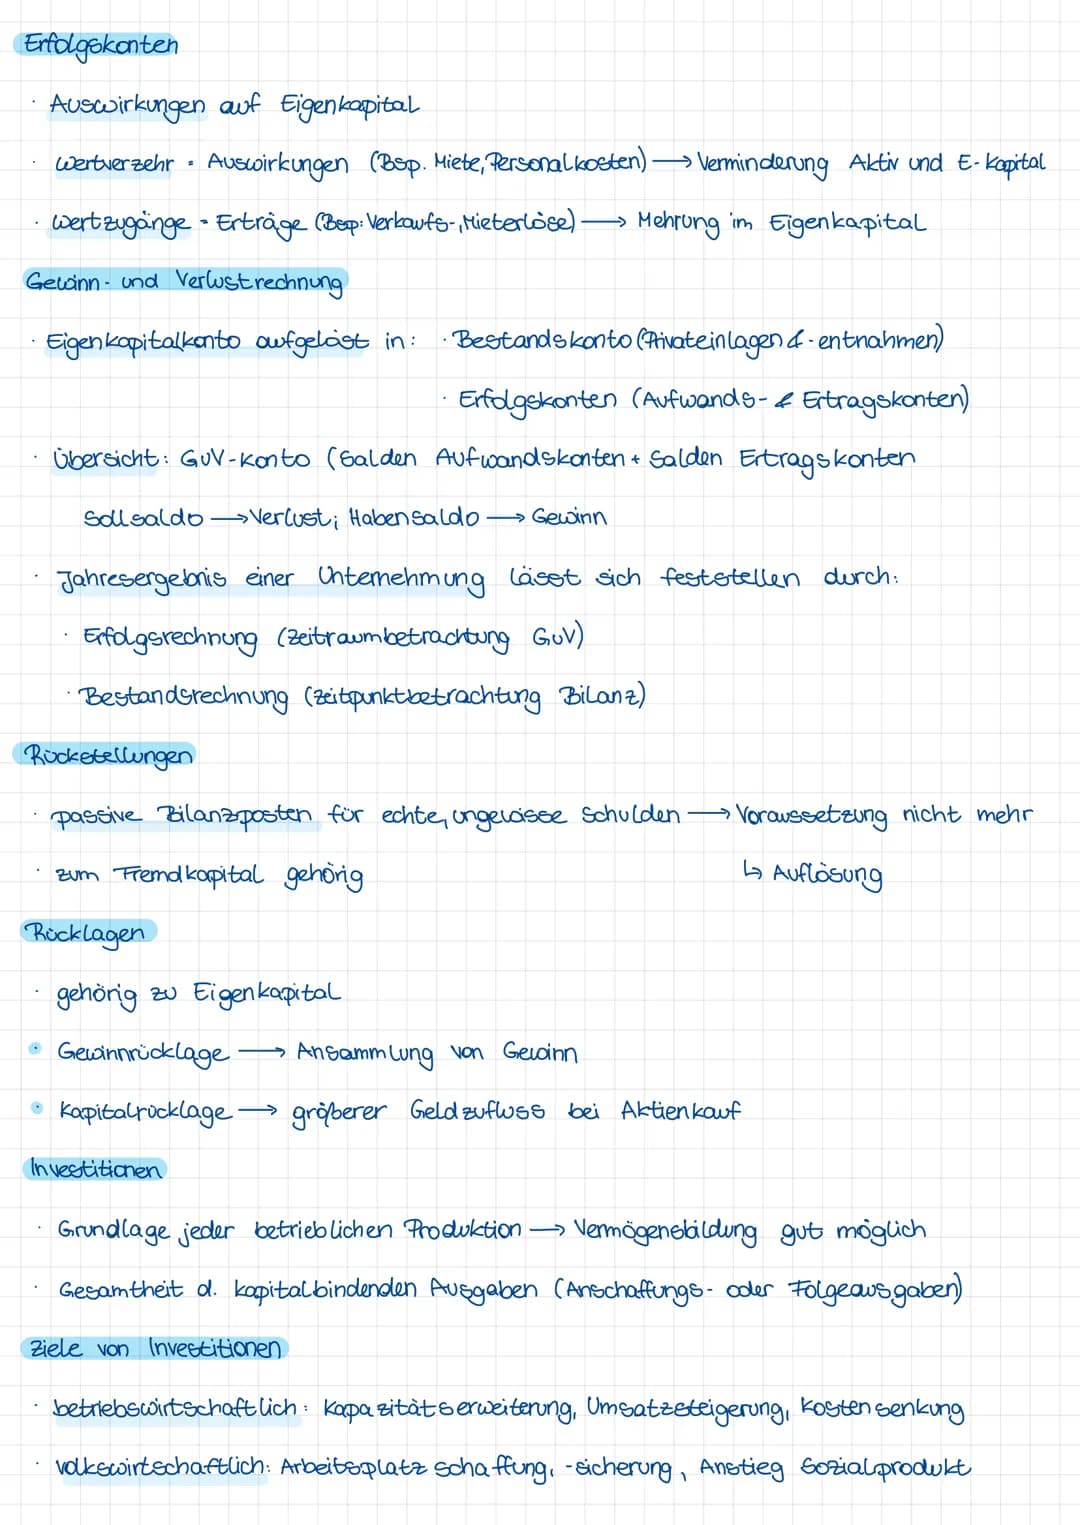 Erfolgskonten
· Auswirkungen auf Eigenkapital
· Wertverzehr = Auswirkungen (Bsp. Miete, Personalkosten) → Verminderung Aktiv und E-Kapital
· Wertzugänge = Erträge (Bsp: Verkaufs-, Mieterlöse) → Mehrung im Eigenkapital
Gewinn- und Verlustrechnung
· Eigenkapitalkonto aufgelöst in: · Bestandskonto (Privateinlagen & -entnahmen)
· Erfolgskonten (Aufwands- & Ertragskonten)
· Übersicht: GuV-Konto (Salden Aufwandskonten + Salden Ertragskonten
Sollsaldo → Verlust; Habensaldo → Gewinn
· Jahresergebnis einer Unternehmung lässt sich feststellen durch:
· Erfolgsrechnung (Zeitraumbetrachtung GuV)
· Bestandsrechnung (Zeitpunktbetrachtung Bilanz)
Rückstellungen
· passive Bilanzposten für echte, ungewisse Schulden → Voraussetzung nicht mehr
· zum Fremdkapital gehörig ↳ Auflösung
Rücklagen
· gehörig zu Eigenkapital
• Gewinnrücklage → Ansammlung von Gewinn
• Kapitalrücklage → größerer Geldzufluss bei Aktienkauf
Investitionen
· Grundlage jeder betrieblichen Produktion → Vermögensbildung gut möglich
· Gesamtheit d. kapitalbindenden Ausgaben (Anschaffungs- oder Folgeausgaben)
Ziele von Investitionen
· betriebswirtschaftlich: Kapazitätserweiterung, Umsatzsteigerung, Kostensenkung
· volkswirtschaftlich: Arbeitsplatzschaffung, -sicherung, Anstieg Sozialprodukt